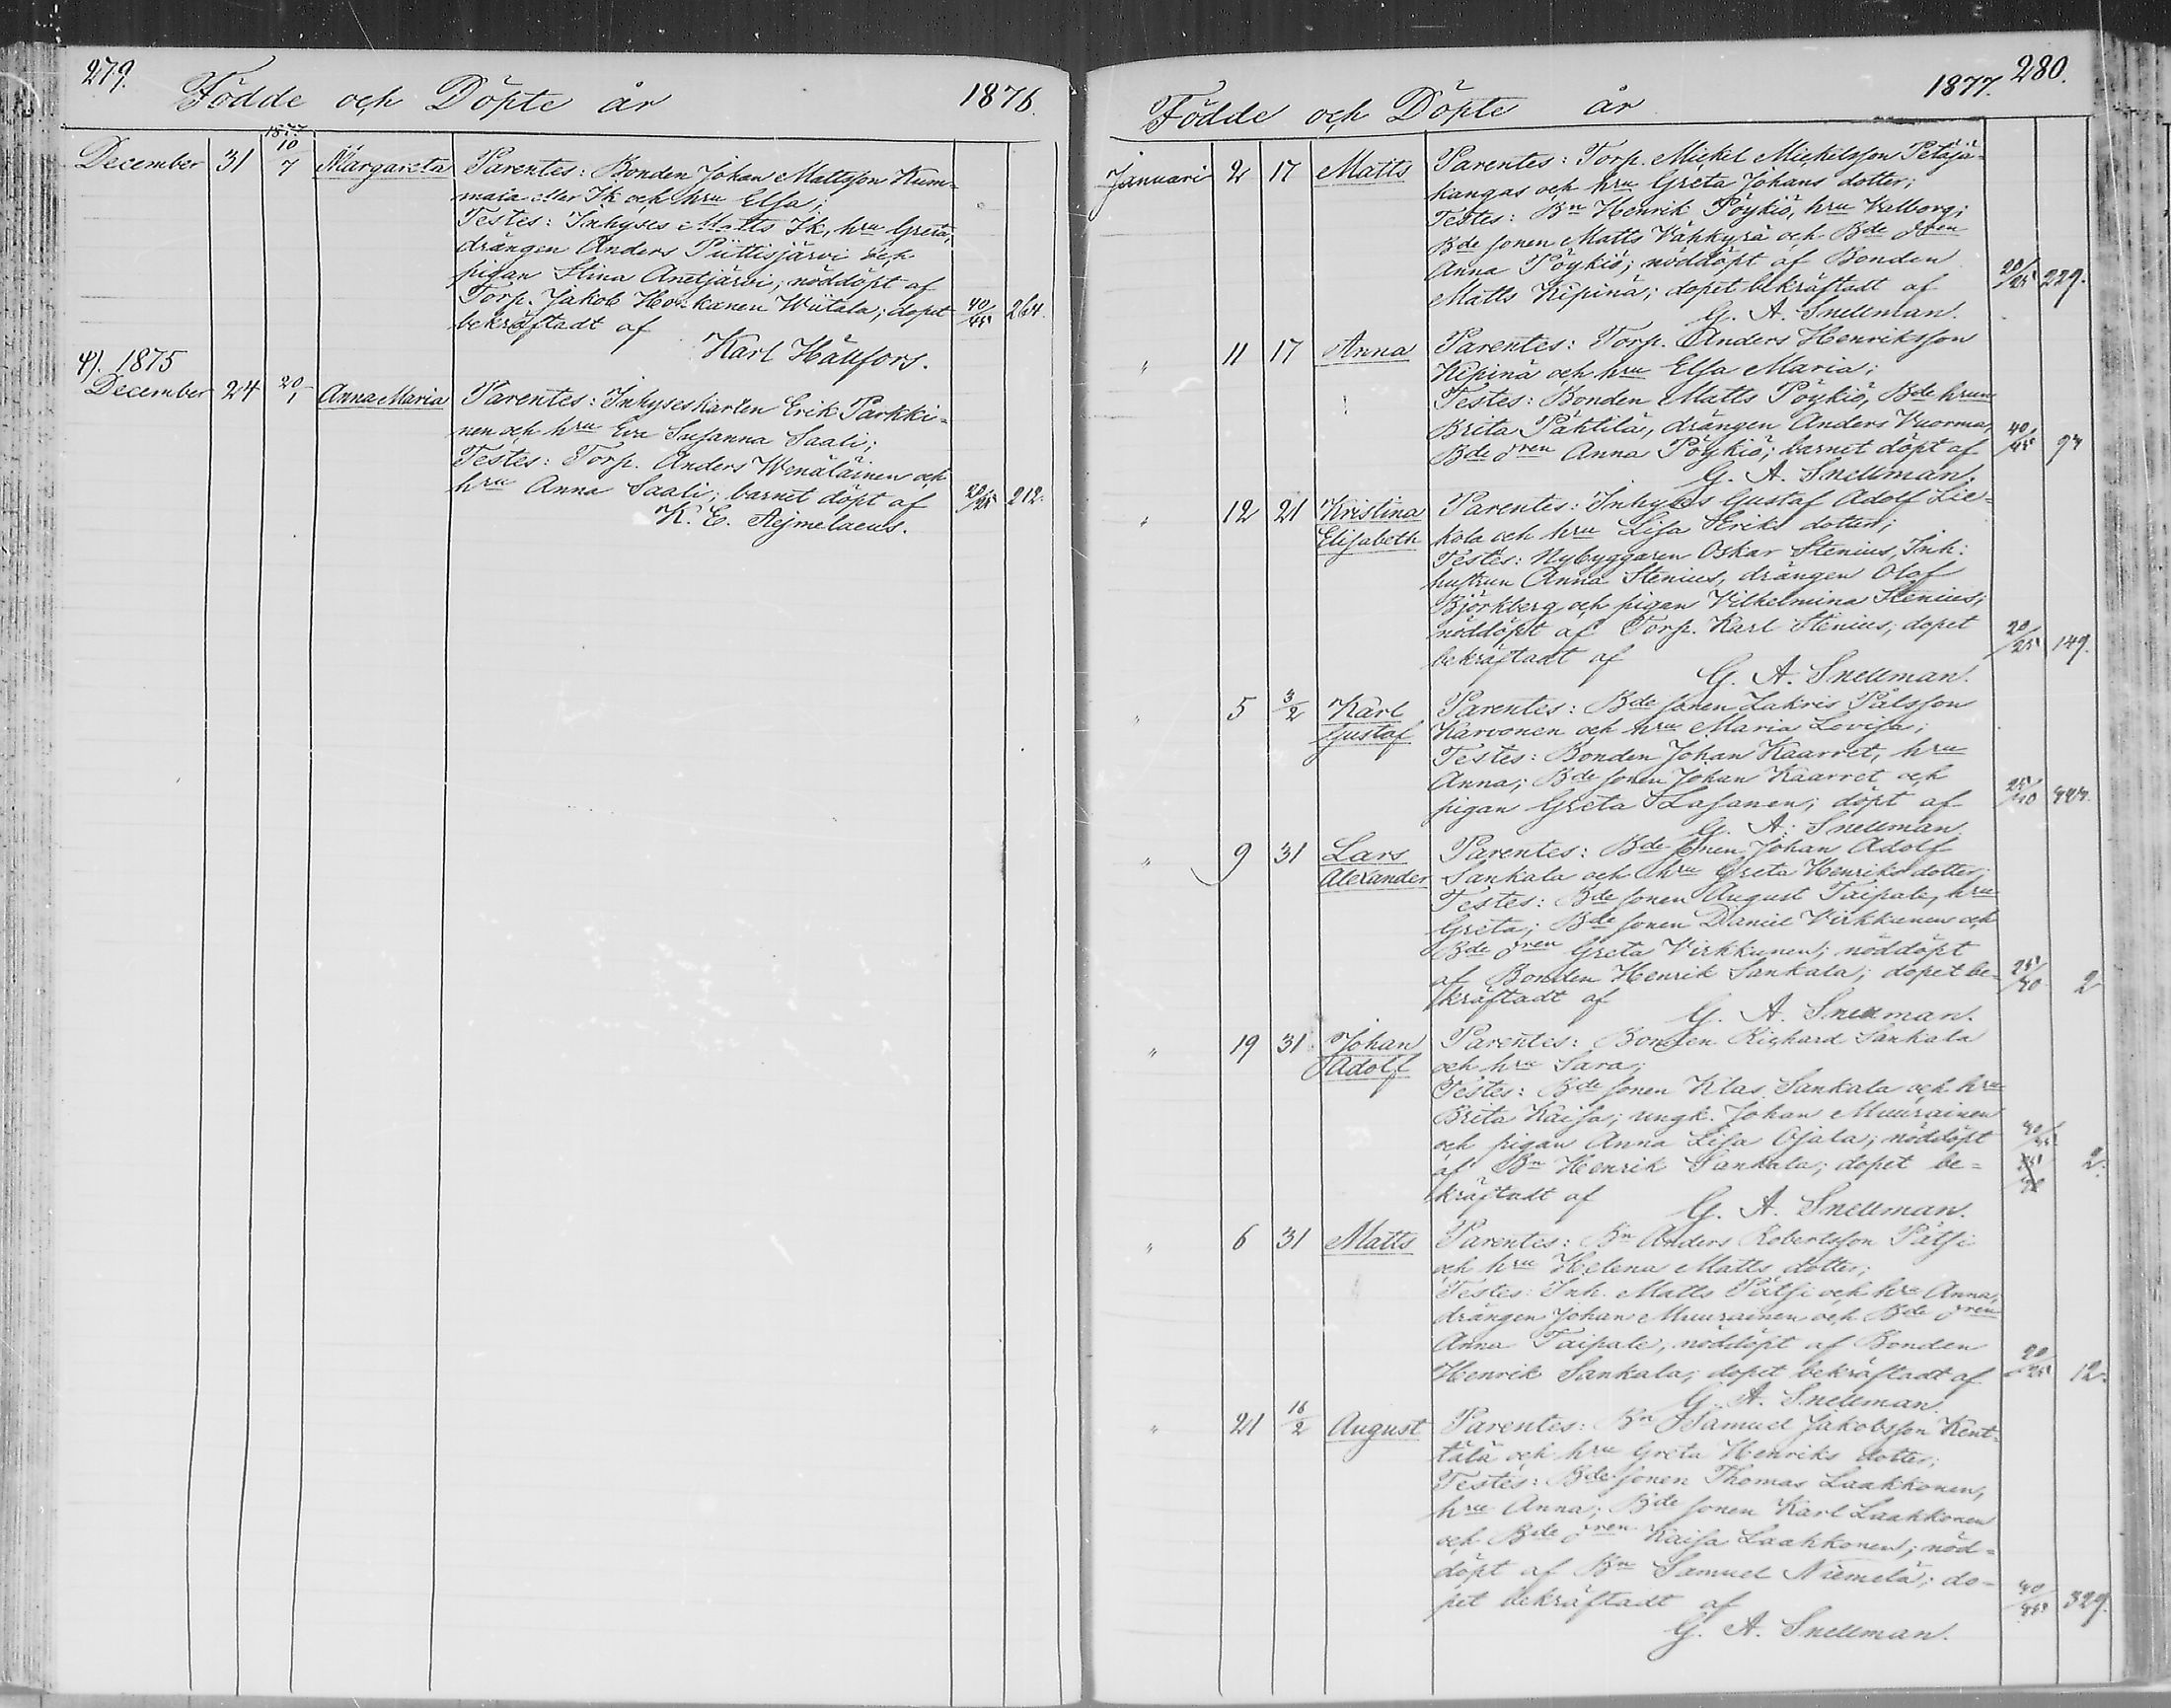 279.
Födde och Döpte år 1876.
1877
December 31 10/7 Margareta Parentes: Bonden Johan Mattsson Kum=
maia eller Ik och hru Elsa;
Testes: Inhyses Matts Ik, hru Greta,
drängen Anders Püttisjärvi och
pigan Stina Anetjärvi; nöddöpt af
Torp. Jakob Honkanen Wiitala; dopet 40/45 264.
bekräftadt af
Karl Hällfors.
φ). 1875
December 24 20/1 Anna Maria Parentes: Inhyseskarlen Erik Parkki=
nen och hru Eva Susanna Saali;
Testes: Torp. Anders Wenäläinen och
hru Anna Saali; barnet döpt af 20/25 212.
K. E. Aejmelaeus.
280.
Födde och Döpte år 1877.
Januari 2 17 Matts Parentes: Torp. Mickel Mickelsson Petäjä=
kangas och hru Greta Johans dotter;
Testes: Bn Henrik Pöykiö, hru Valborg;
Bde sonen Matts Vähkyrä och Bde dren
Anna Pöykiö; nöddöpt af Bonden
Matts Kipinä; dopet bekräftadt af 20/25 229.
G. A. Snellman.
" 11 17 Anna Parentes: Torp. Anders Henriksson
Kipinä och hru Elsa Maria;
Testes: Bonden Matts Pöykiö, Bde hrun
Brita Pähtilä, drängen Anders Vuorma,
Bde dren Anna Pöykiö; barnet döpt af 40/45 97
G. A. Snellman.
" 12 21 Kristina Parentes: Inhyses Gustaf Adolf Lie=
Elisabeth kola och hru Lisa Eriks dotter;
Testes: Nybyggaren Oskar Stenius, Inh:
hustrun Anna Stenius, drängen Olof
Björkberg och pigan Vilhelmina Stenius;
nöddöpt af Torp. Karl Stenius; dopet
bekräftadt af 20/25 149.
G. A. Snellman.
" 5 3/2 Karl Parentes: Bde sonen Zakris Pålsson
Gustaf Karvonen och hru Maria Lovisa;
Testes: Bonden Johan Kaarret, hru
Anna; Bde sonen Johan Kaarret och
pigan Greta Lasanen; döpt af 25/40
G. A. Snellman.
" 9 31 Lars Parentes: Bde sonen Johan Adolf
Alexander Sankala och hru Greta Henriks dotter;
Testes: Bde sonen August Taipale, hru
Greta; Bde sonen Daniel Virkkunen och
Bde dren Greta Virkkunen; nöddöpt
af Bonden Henrik Sankala; dopet be= 25/40 2
kräftadt af
G. A. Snellman.
" 19 31 Johan Parentes: Bonden Richard Sankala
Adolf och hru Sara;
Testes: Bde sonen Klas Sankala och hru
Brita Kaisa; ungk. Johan Muurainen
och pigan Anna Lisa Ojala; nöddöpt
af Bn Henrik Sankala; dopet be= 2.
kräftadt af
G. A. Snellman.
" 6 31 Matts Parentes: Bn Anders Robertsson Pätsi
och hru Helena Matts dotter;
Testes: Inh. Matts Pätsi och hru Anna;
drängen Johan Muurainen och Bde dren
Anna Taipale, nöddöpt af Bonden
Henrik Sankala; dopet bekräftadt af 20/25 12.
G. A. Snellman.
" 21 16/2 August Parentes: Bn Samuel Jakobsson Kent=
tälä och hru Greta Henriks dotter;
Testes: Bde sonen Thomas Laakkonen,
hru Anna; Bde sonen Karl Laakkonen
och Bde dren Kaisa Laakkonen; nöd=
döpt af Bn Samuel Niemelä; do=
pet bekräftadt af 329.
G. A. Snellman.